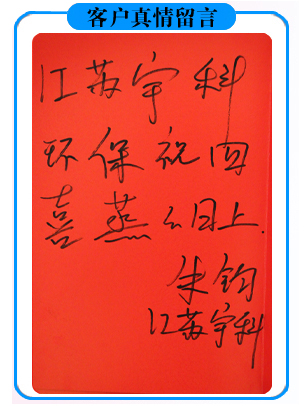 客户真情留言
江苏宇科
环保祝四
喜燕么日上
朱钧
江苏宇科